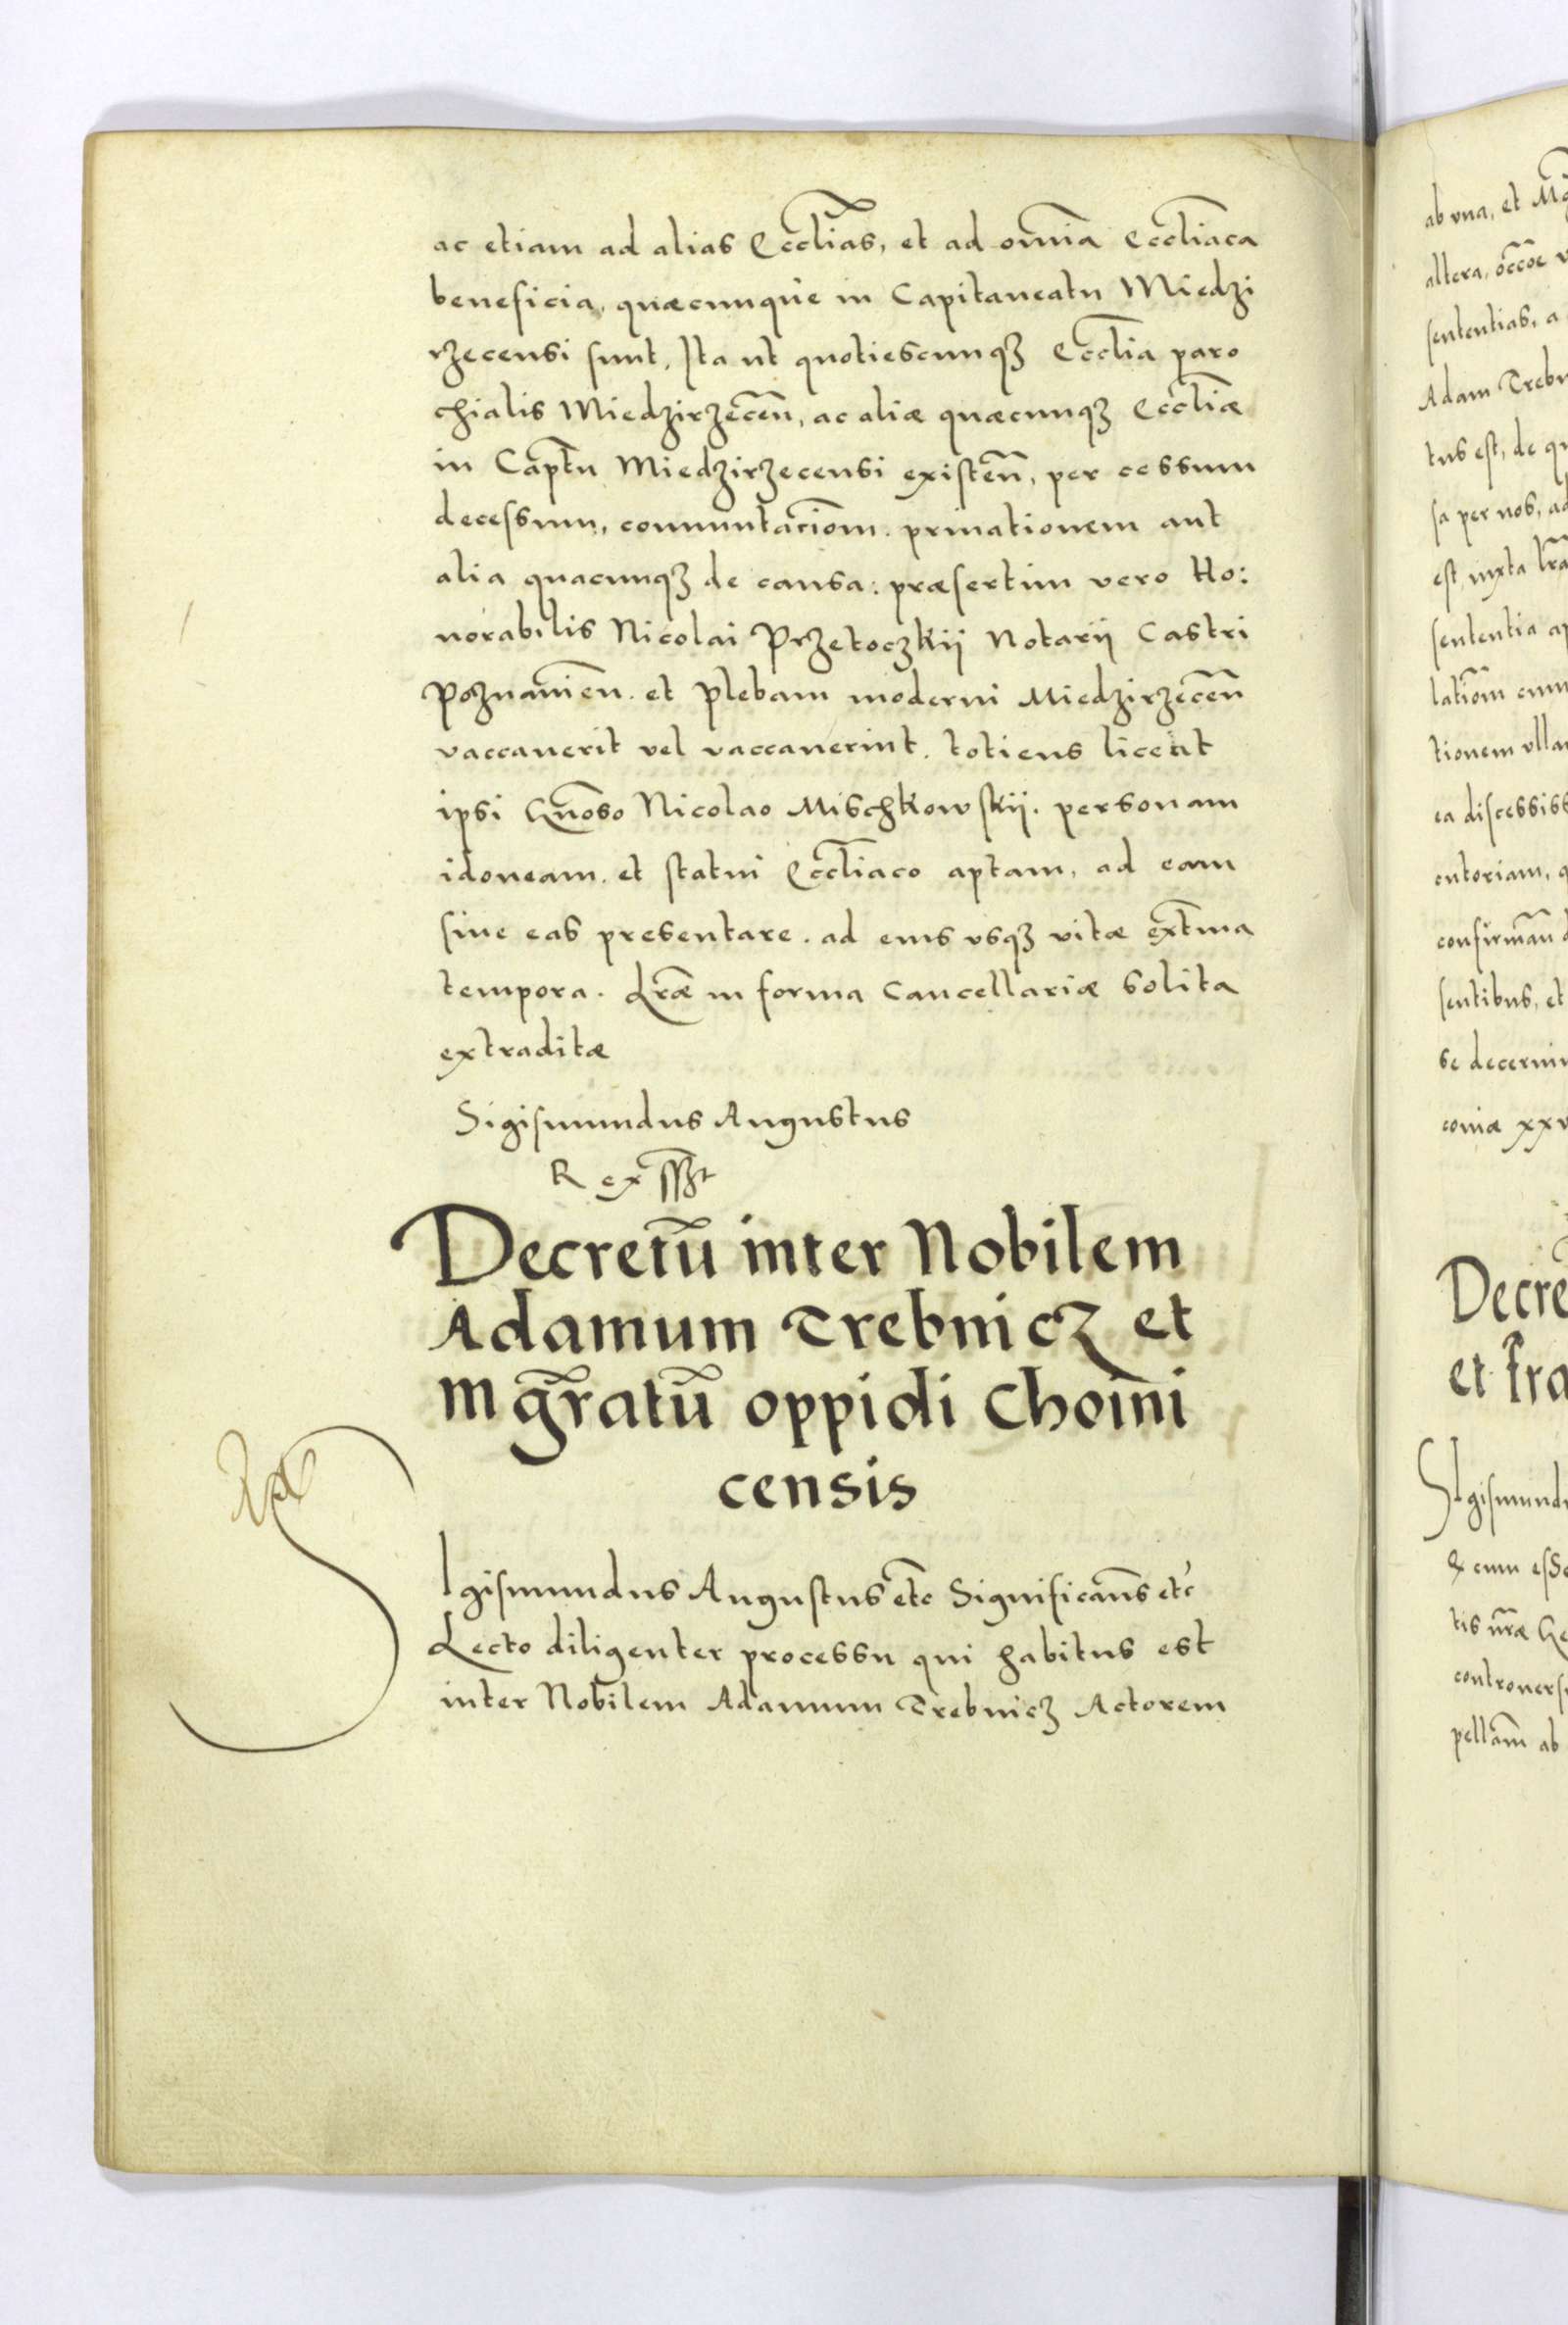 ac etiam ad alias Eccłias, et ad omnia Eccłiaca
beneficia, quæcunque in Capitaneatu Miedzi
rzecensi sunt, Ita ut quotiescunqꝫ Eccłia paro
chialis Miedzirzecen̄, ac aliæ quæcunqꝫ Eccłiæ
in Captu Miedzirzecensi existen̄, per cessum
decessum, commutaciom̄. privationem aut
alia quacunqꝫ de causa: præsertim vero Ho:
norabilis Nicolai Przetoczkij Notarij Castri
Poznanien̄. et plebani moderni Miedzirzecen̄
vaccaverit vel vaccaverint. totiens liceat
ipsi Gnōso Nicolao Mischkowskij. personam
idoneam. et statui Eccłiaco aptam, ad eam
sive eas presentare. ad eius usqꝫ vitæ extma
tempora. Lræ in forma Cancellariæ solita
extraditæ
Sigismundus Augustus
Rex sszt
Decretū inter Nobilem
Adamum Trebnicz et
mgr̄atū oppidi Choini
censis
SIgismundus Augustus etc̄ Significan̄s etc̄
Lecto diligenter processu qui habitus est
inter Nobilem Adamum Trebnicz Actorem
ab una, et
altera, occōe
sententias, a
Adam
tus est, de
sa per nob,
est, iuxta
sententia
latiom̄ cum
tionem
ea
confirmān
sentibus, et
se
Decre
et fra
SIgismund
& cum
tis nr̄æ
ab